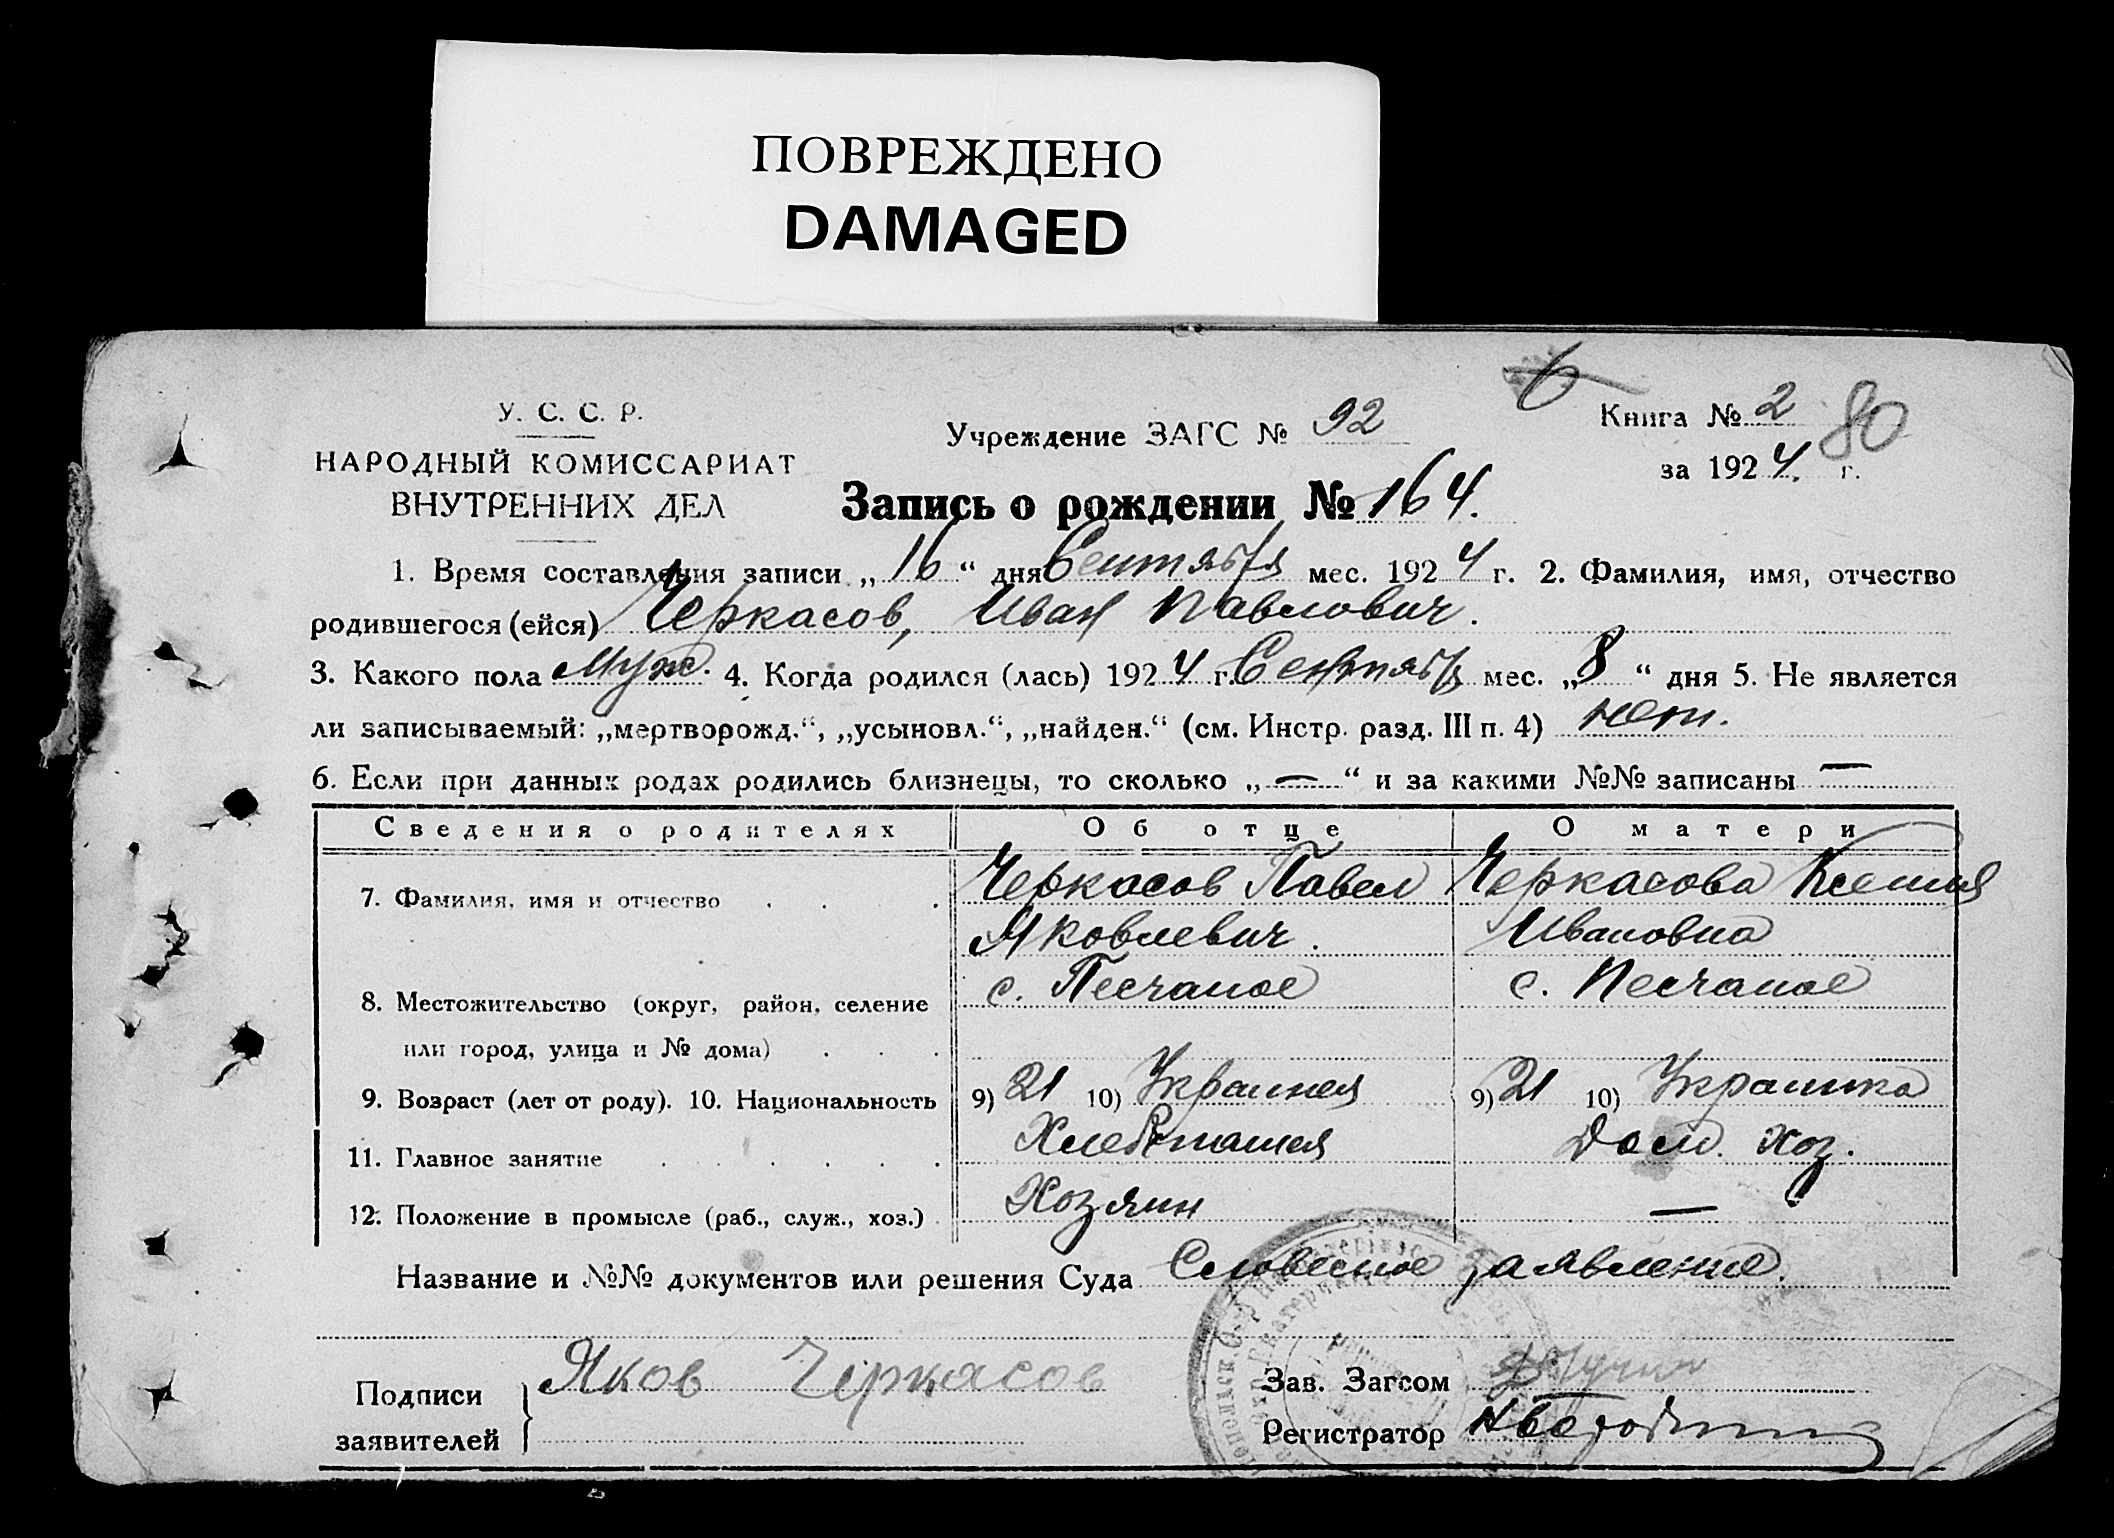 ПОВРЕЖДЕНО
DAMAGED
6
У. С. С. Р.
НАРОДНЫЙ КОМИССАРИАТ
ВНУТРЕННИХ ДЕЛ
Учреждение ЗАГС № 92
Книга № 2 80
за 1924. г.
Запись о рождении № 164.
1. Время составления записи „16“ дня Сентября мес. 1924 г. 2. Фамилия, имя, отчество
родившегося (ейся) Черкасов, Иван Павлович.
3. Какого пола Муж. 4. Когда родился (лась) 1924 г. Сентябрь мес. „8“ дня 5. Не является
ли записываемый: „мертворожд.“, „усыновл.“, „найден.“ (см. Инстр. разд. III п. 4) нет.
6. Если при данных родах родились близнецы, то сколько „—“ и за какими №№ записаны —
Сведения о родителях Об отце О матери
7. Фамилия, имя и отчество . . . Черкасов Павел Черкасова Ксения
Яковлевич. Ивановна
8. Местожительство (округ, район, селение с. Песчаное с. Песчаное
или город, улица и № дома) . . .
9. Возраст (лет от роду). 10. Национальность 9) 21 10) Украинец 9) 21 10) Украинка
11. Главное занятие . . . . . . Хлебопашец Дом. хоз.
12. Положение в промысле (раб., служ., хоз.) . Хозяин —
Название и №№ документов или решения Суда Словесное заявление.
Подписи
заявителей
Яков Черкасов
Зав. Загсом
Регистратор